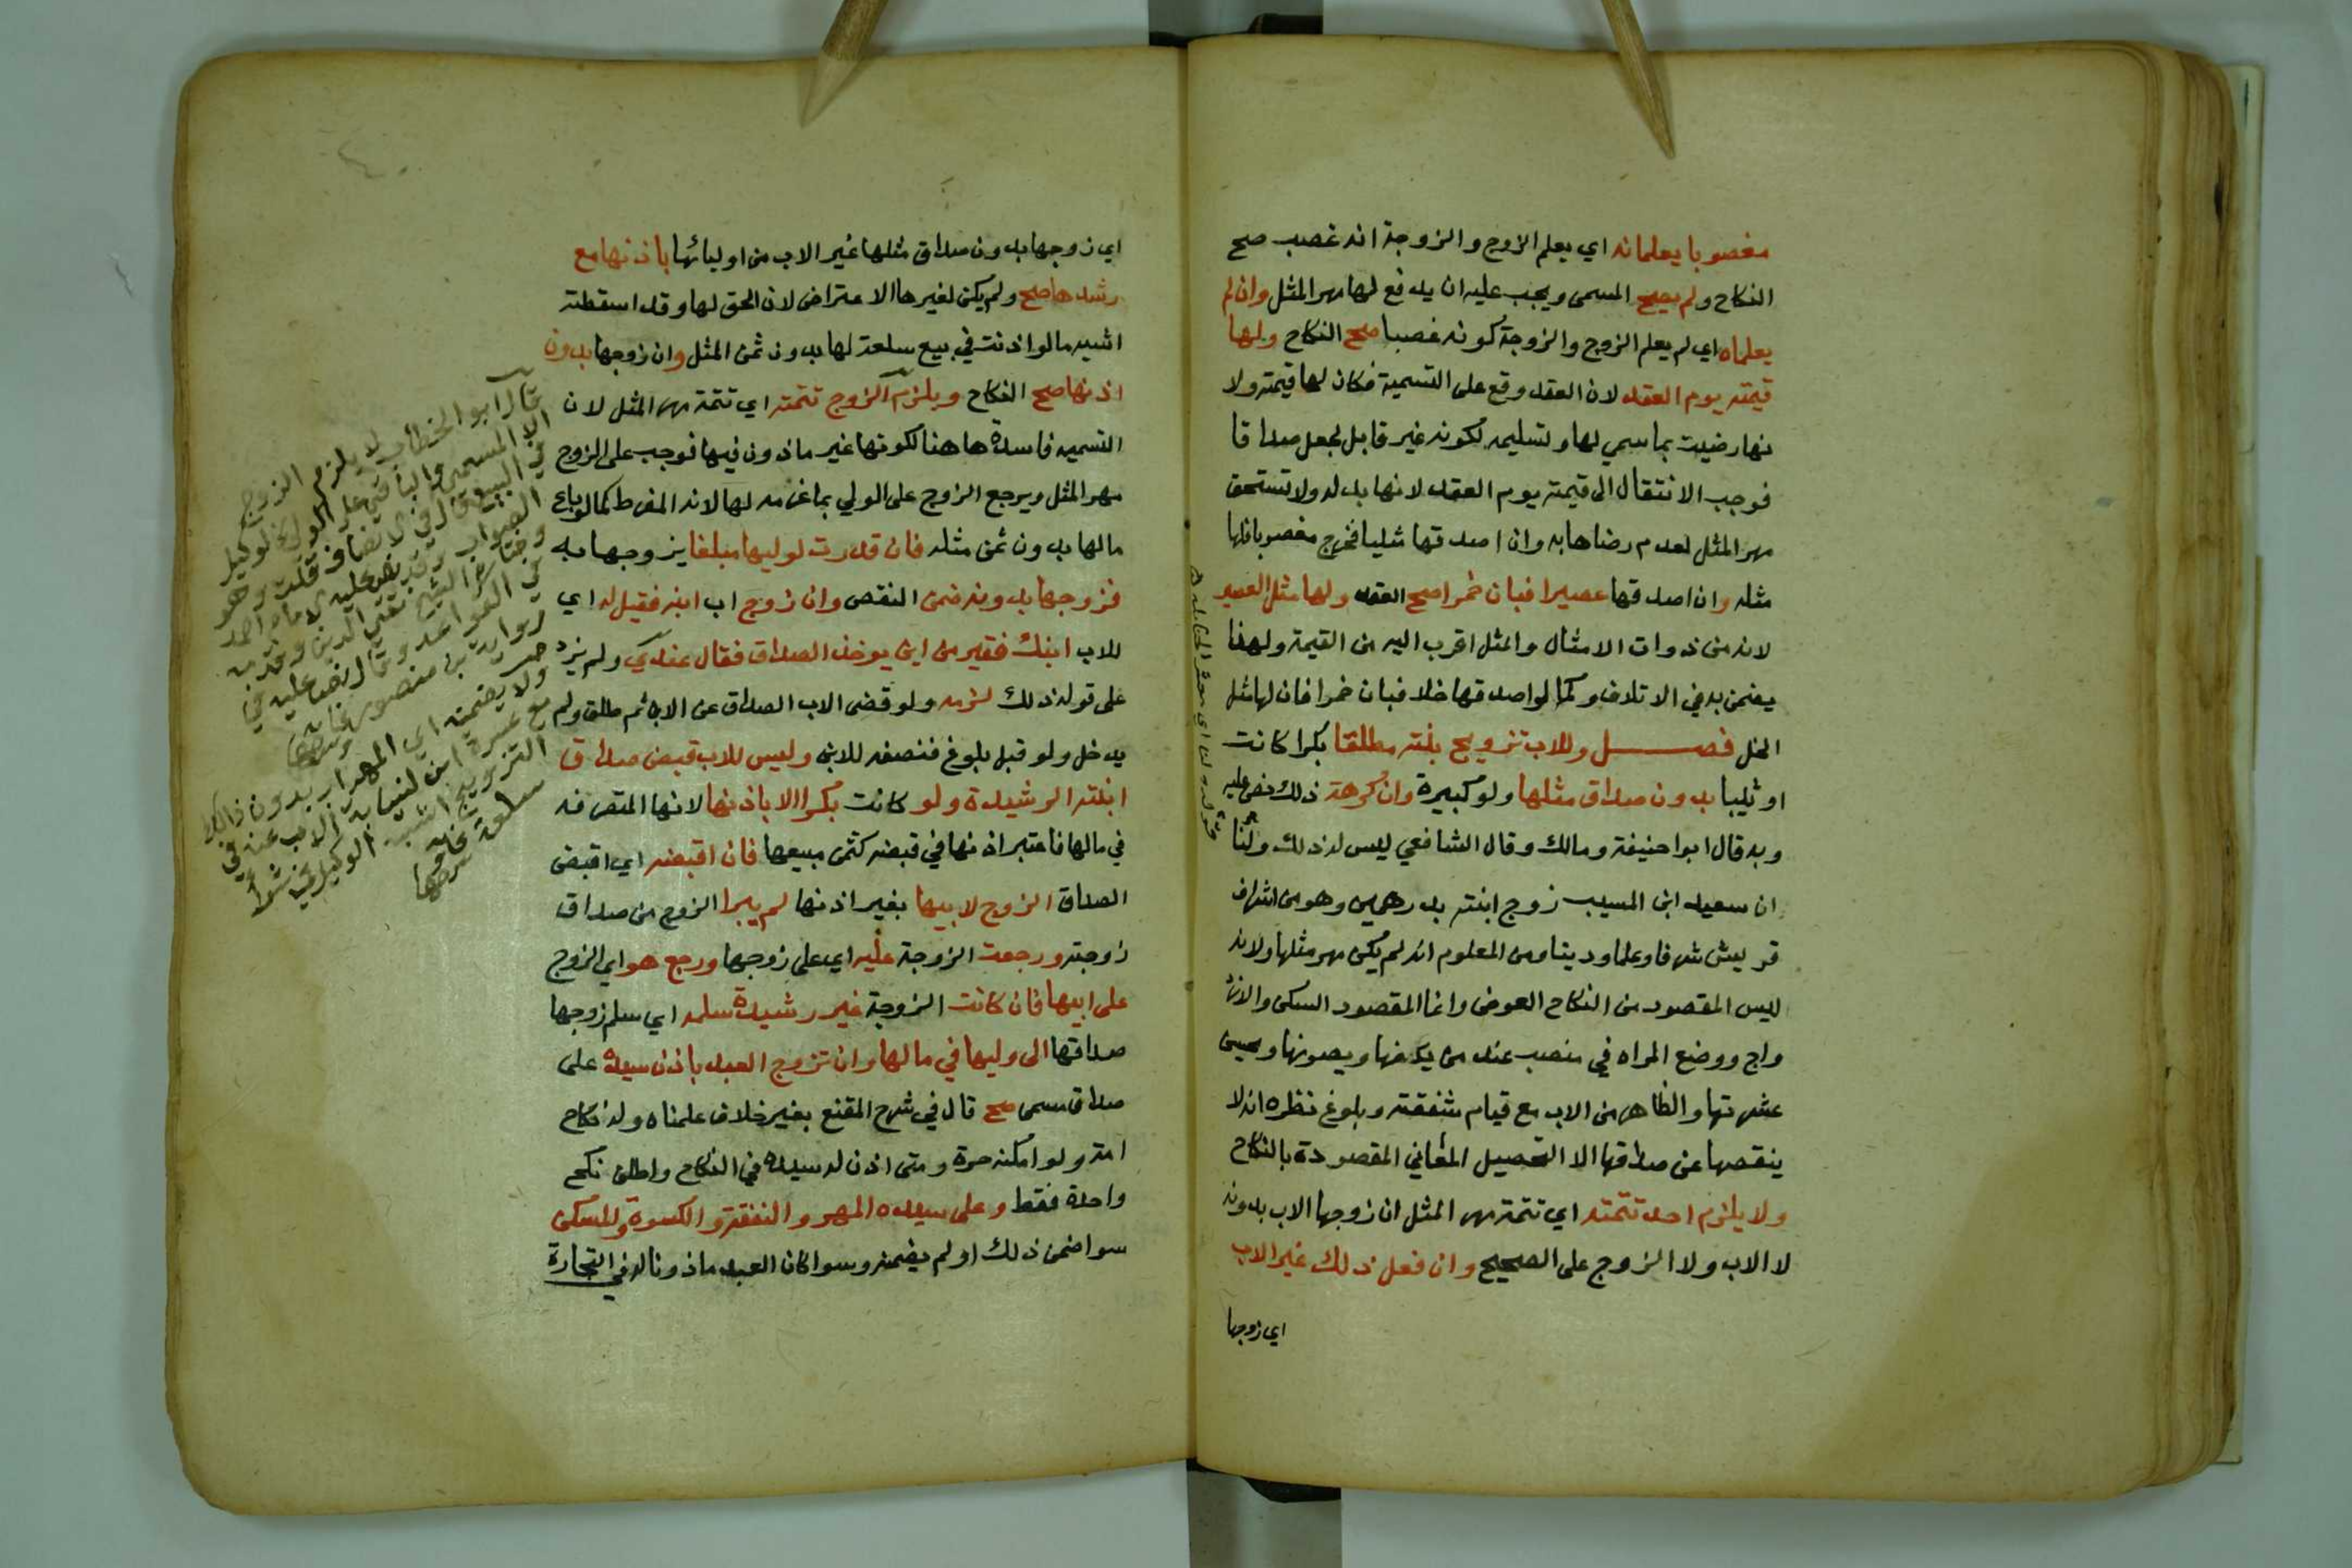 مغصوبا يعلمانه اي يعلم الزوج والزوجة انه غصب صح
النكاح ولم يصح المسمى ويجب عليه ان يدفع لها مهر المثل وان لم
يعلماه اي لم يعلم الزوج والزوجة كونه غصبا صح النكاح ولها
قيمته يوم العقد لان العقد وقع على التسمية فكان لها قيمته ولا
نها رضيت بما سمي لها وتسليمه لكونه غير قابل لجعل صداقا
فوجب الانتقال الى قيمته يوم العقد لانها بدله ولا تستحق
مهر المثل لعدم رضاها به وان اصدقها مثليا فخرج مغصوبا فلها
مثله وان اصدقها عصيرا فبان خمرا صح العقد ولها مثل العصير
لانه من ذوات الامثال والمثل اقرب اليه من القيمة ولهذا
يضمن به في الاتلاف وكما لو اصدقها خلا فبان خمرا فان لها مثل
الخل فصل وللاب تزويج بنته مطلقا بكرا كانت
او ثيبا بدون صداق مثلها ولو كبيرة وان كرهت ذلك نص عليه
وبه قال ابوا حنيفة ومالك وقال الشافعي ليس له ذلك ولنا
ان سعيد ابن المسيب زوج ابنته بدرهمين وهو من اشراف
قريش شرفا وعلما ودينا ومن المعلوم انه لم يكن مهر مثلها ولانه
ليس المقصود من النكاح العوض وانما المقصود السكن والاز
واج ووضع المراه في منصب عند من يكفها ويصونها ويحسن
عشرتها والظاهر من الاب مع قيام شفقته وبلوغ نظره انه لا
ينقصها عن صداقها الا لتحصيل المعاني المقصودة بالنكاح
ولا يلزم احد تتمته اي تتمة مهر المثل ان زوجها الاب بدونه
لا الاب ولا الزوج على الصحيح وان فعل ذلك غير الاب
اي زوجها
اي زوجها بدون صداق مثلها غير الاب من اوليائها باذنها مع
رشدها صح ولم يكن لغيرها الاعتراض لان الحق لها وقد اسقطته
اشبه ما لو اذنت في بيع سلعة لها بدون ثمن المثل وان زوجها بدون
اذنها صح النكاح ويلزم الزوج تتمته اي تتمة مهر المثل لان
التسميه فاسدة هاهنا لكونها غير ماذون فيها فوجب على الزوج
مهر المثل ويرجع الزوج على الولي بما غرمه لها لانه المفرط كما لو باع
مالها بدون ثمن مثله فان قدرت لوليها مبلغا يزوجها به
فزوجها بدونه ضمن النقص وان زوج اب ابنه فقيل له اي
للاب ابنك فقير من اين يوخذ الصداق فقال عندي ولم يزد
على قوله ذلك لزمه ولو قضى الاب الصداق عن الابن ثم طلق ولم
يدخل ولو قبل بلوغ فنصفه للابن وليس للاب قبض صداق
ابنته الرشيدة ولو كانت بكرا الا باذنها لانها المتصرفه
في مالها فاعتبر اذنها في قبضه كثمن مبيعها فان اقبضه اي اقبض
الصداق الزوج لابيها بغير اذنها لم يبرا الزوج من صداق
زوجته ورجعت الزوجة عليه اي على زوجها ورجع هو اي الزوج
على ابيها فان كانت الزوجة غير رشيدة سلمه اي سلم زوجها
صداقها الى وليها في مالها وان تزوج العبد باذن سيده على
صداق مسمى صح قال في شرح المقنع بغير خلاف علمناه وله نكاح
امة ولو امكنه حرة ومتى اذن له سيده في النكاح واطلق نكح
واحدة فقط وعلى سيده المهر والنفقة والكسوة والمسكن
سوا ضمن ذلك او لم يضمنه وسوا كان العبد ماذونا له في التجارة
قال ابو الخطاب لا يلزم الزوج
الا المسمى والباقي على الولي كالوكيل
في البيع قال في الانصاف قلت وهو
الصواب وقد نص عليه الامام احمد
واختاره الشيخ تقي الدين
في القواعد وقال نص عليه في
رواية بن منصور
ولا يضمنه اي المهر اب بدون ذلك
مع عسرة ابن لنيابة الاب عنه في
التزويج اشبه الوكيل في شرا
سلعة